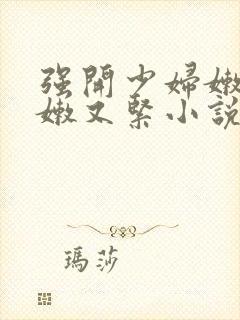 强開少婦嫩
嫩又緊小說
瑪莎